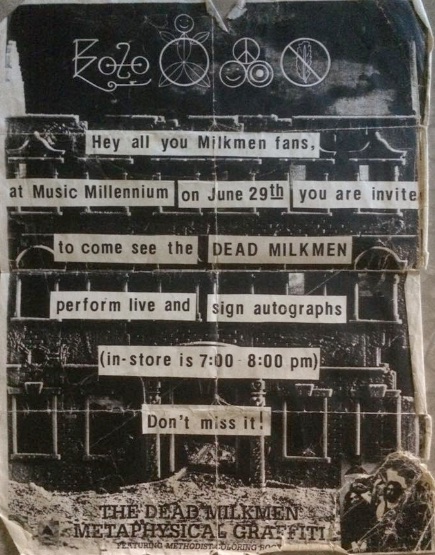 Bozo
Hey all you Milkmen fans,
at Music Millennium on June 29th you are invite
to come see the DEAD MILKMEN
perform live and sign autographs
(in-store is 7:00 - 8:00 pm)
Don't miss it!
THE DEAD MILKMEN
METAPHYSICAL GRAFFITI
FEATURING METHODIST COLORING BOOK